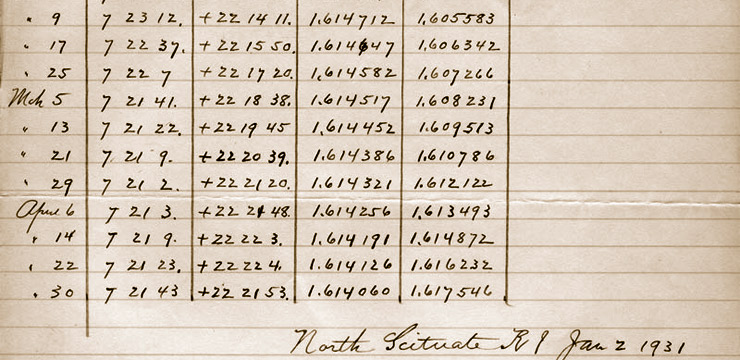 " 9 7 23 12. +22 14 11. 1.614712 1.605583
" 17 7 22 37. +22 15 50. 1.614647 1.606342
" 25 7 22 7 +22 17 20. 1.614582 1.607266
Mch 5 7 21 41. +22 18 38. 1.614517 1.608231
" 13 7 21 22. +22 19 45 1.614452 1.609513
" 21 7 21 9. +22 20 39. 1.614386 1.610786
" 29 7 21 2. +22 21 20. 1.614321 1.612122
April 6 7 21 3. +22 21 48. 1.614256 1.613493
" 14 7 21 9. +22 22 3. 1.614191 1.614872
" 22 7 21 23. +22 22 4. 1.614126 1.616232
" 30 7 21 43 +22 21 53. 1.614060 1.617546
North Scituate R I Jan 2 1931